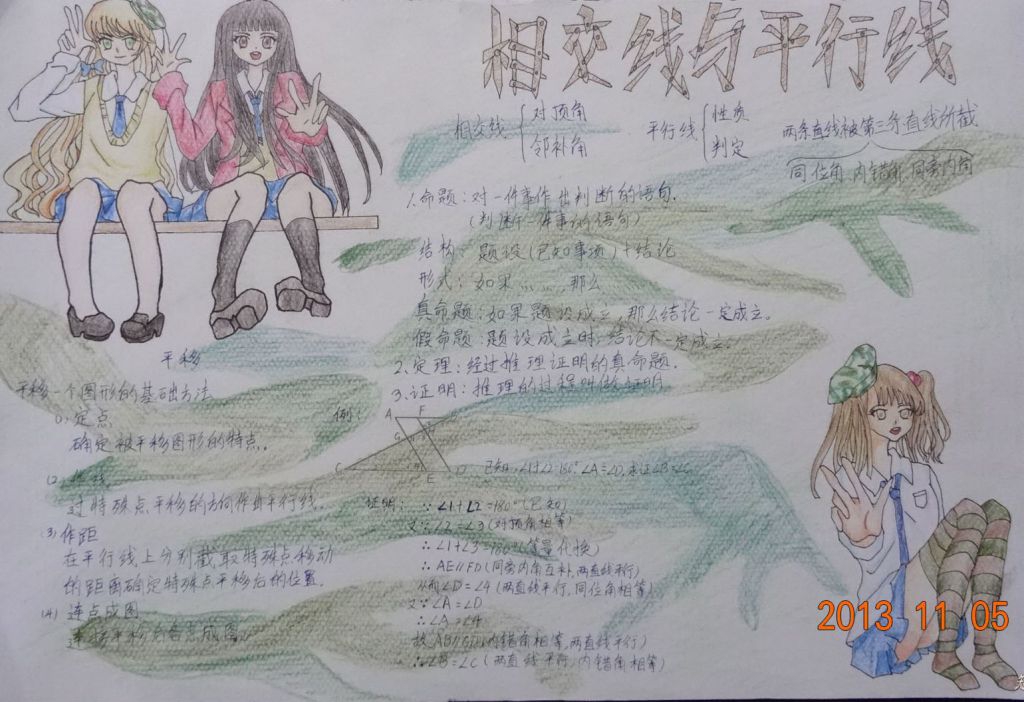 相交线与平行线
相交线 对顶角
邻补角
平行线 性质
判定
两条直线被第三条直线所截
同位角 内错角 同旁内角
1.命题：对一件事作出判断的语句.
(判断一件事的语句)
结构：题设(已知事项)+结论
形式：如果……,那么
真命题：如果题设成立,那么结论一定成立。
假命题：题设成立时,结论不一定成立。
2.定理：经过推理证明的真命题.
3.证明：推理的过程叫做证明
平移
平移一个图形的基础方法
(1)定点
确定被平移图形的特点。
(2)
过特殊点平移的方向作出平行线.
(3)作距
在平行线上分别截取特殊点移动
的距离确定特殊点平移后的位置.
(4)连点成图
连接平移后各点成图.
例：
A F
G
C D
E
已知,∠1+∠2=180°,∠A=∠D,求证∠B=∠C.
证明：∵∠1+∠2=180°(已知)
又∵∠2=∠3(对顶角相等)
∴∠1+∠3=180°(等量代换)
∴AE//FD(同旁内角互补,两直线平行)
从而∠D=∠4(两直线平行,同位角相等)
又∵∠A=∠D
∴∠A=∠4
故AB//CD(内错角相等,两直线平行)
∴∠B=∠C(两直线平行,内错角相等)
2013 11 05